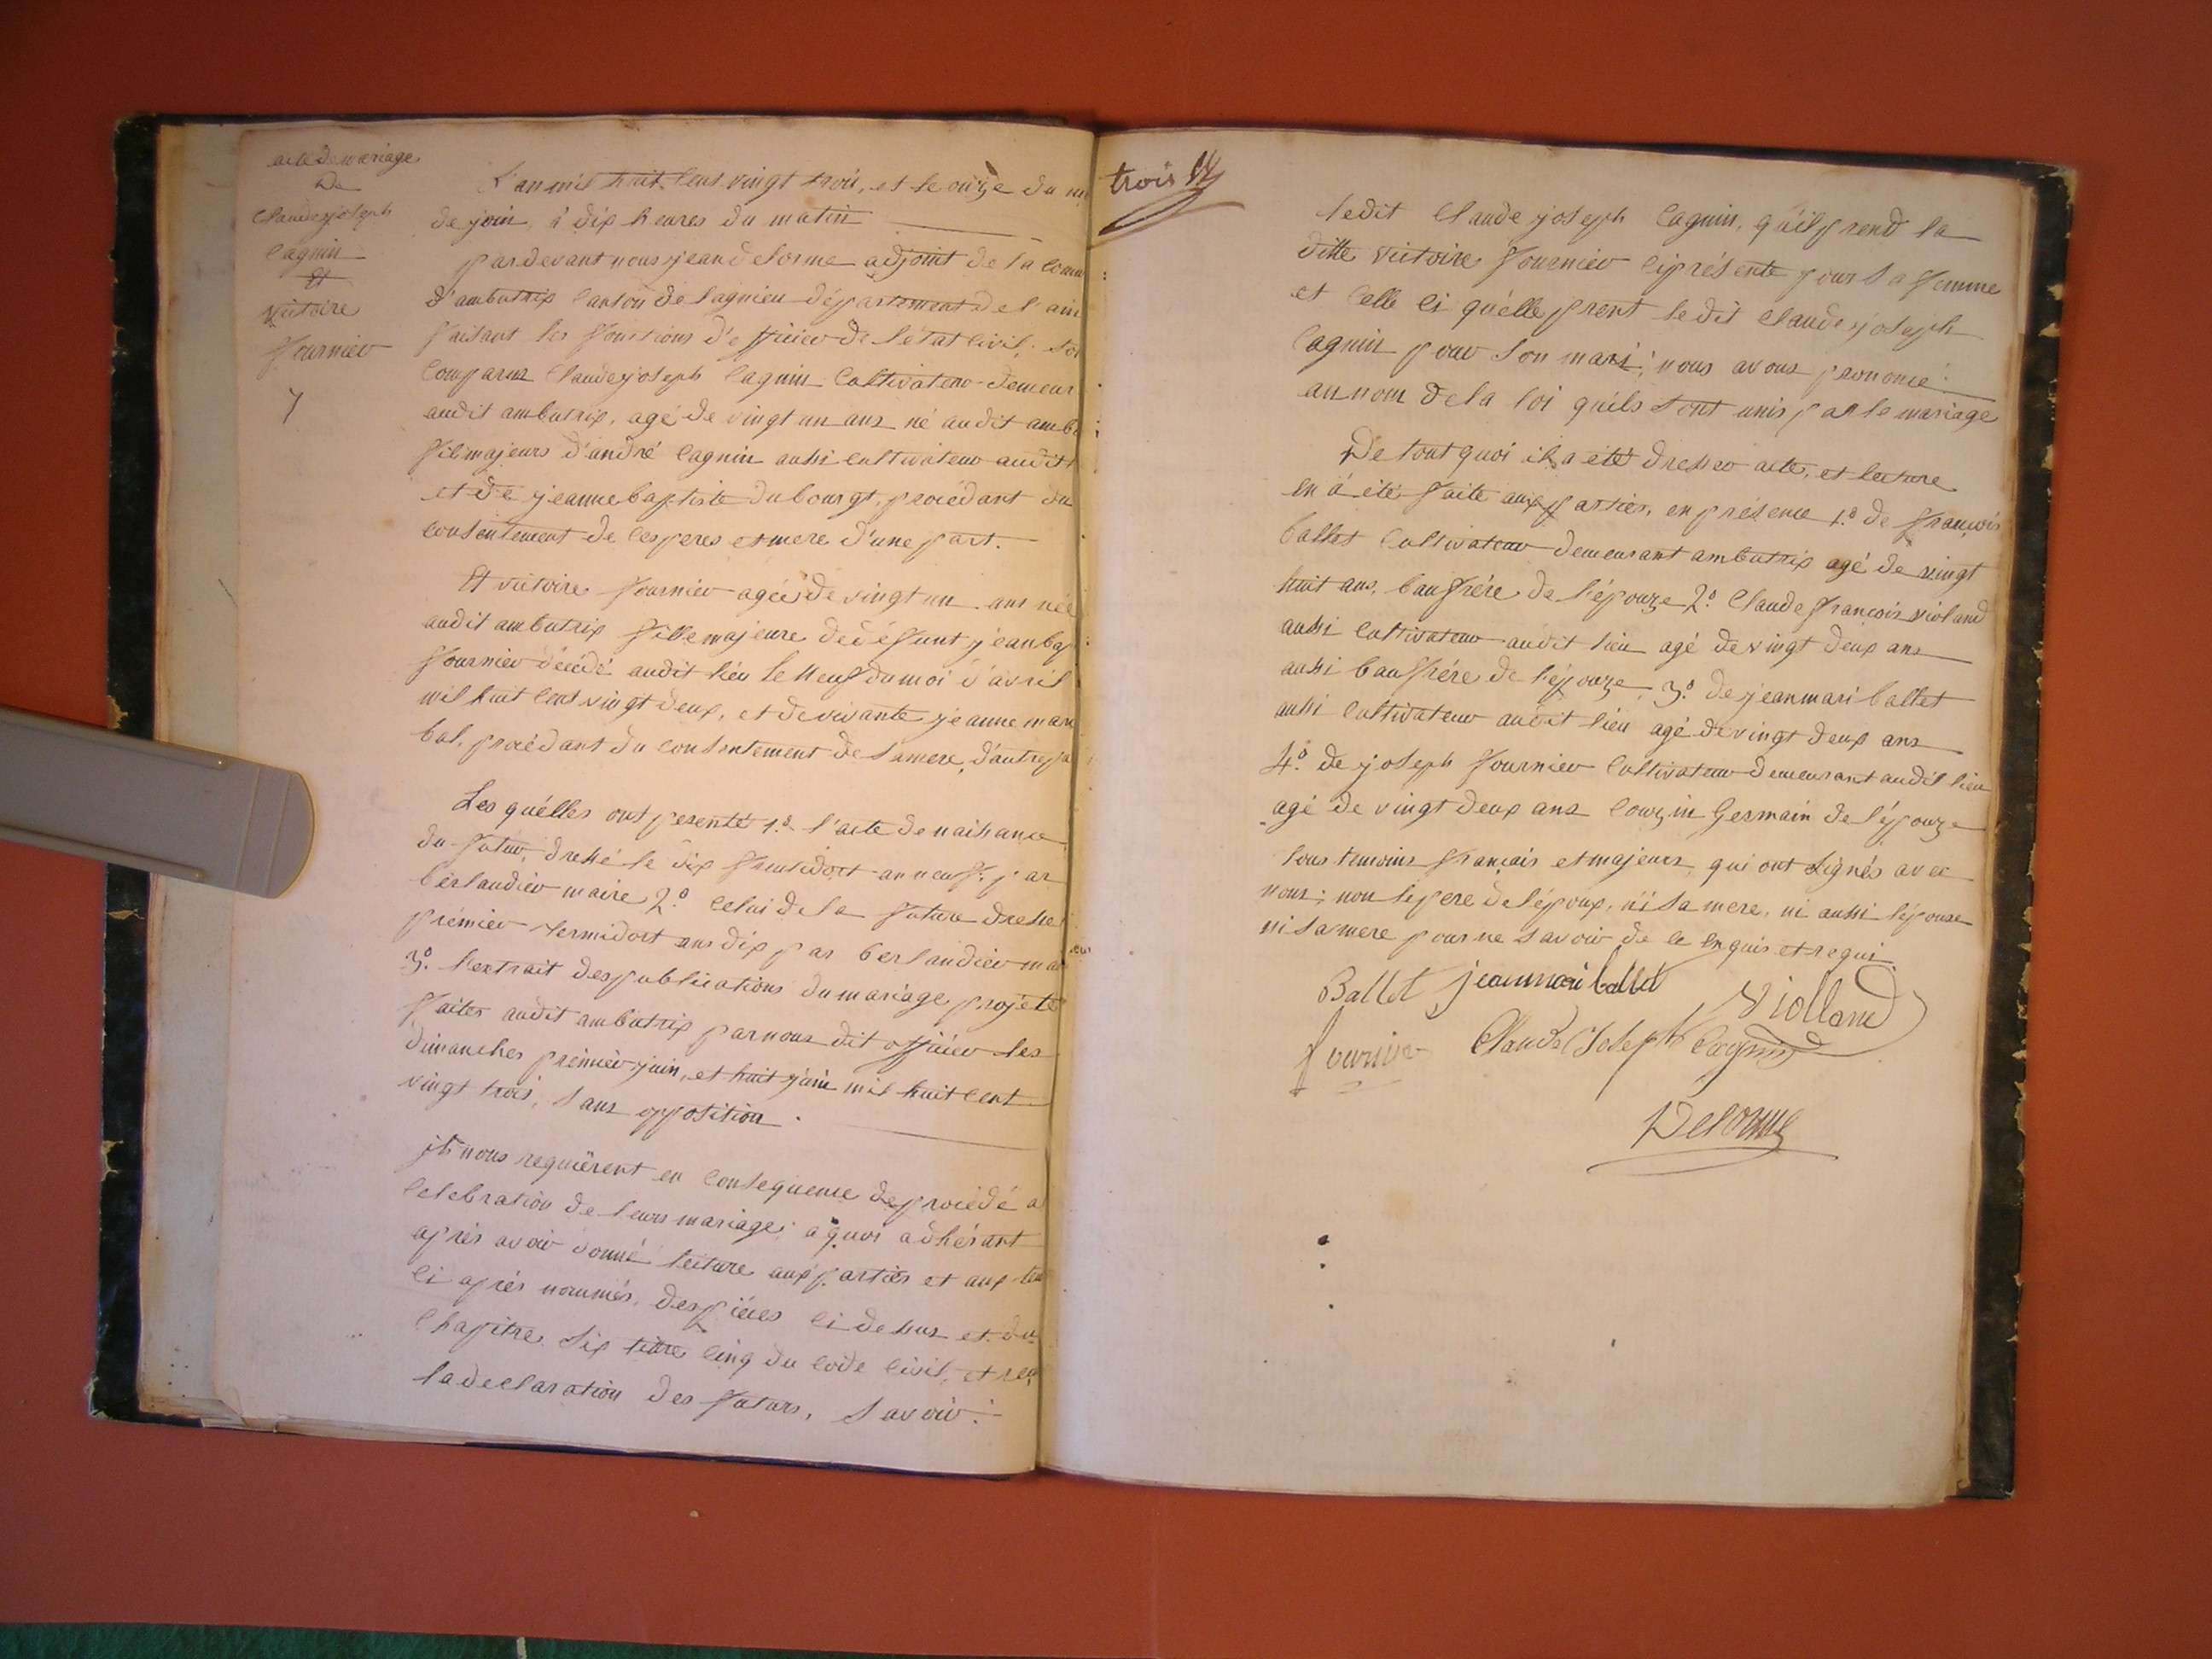 acte de mariage
De
Claude joseph
Cagnin
Et
victoire
fournier
7
L'an mil huit cent vingt trois, et le onze du
de join, à dix heures du matin
pardevant nous jean delorme adjoint de la
d'ambutrix canton de lagnieu département de l'ain
faisant les fonctions d'officier de l'état civil;
comparus Claude joseph Cagnin Cultivateur demeur
audit ambutrix, agé de vingt un ans né audit amb
fils majeurs d'andré Cagnin aussi cultivateur audit
et de jeanne baptiste dubourgt, procédant du
consentement de ces peres et mere d'une part.
Et victoire fournier agée de vingt un ans née
audit ambutrix fille majeure de défunt jean bap
fournier décédé audit lieu le neuf du moi d'avril
mil huit cent vingt deux, et de vivante jeanne mari
bal, procédant du consentement de sa mere, d'autre pa
Les quélles ont presenté 1.º l'acte de naissance
du futur, dressé le dix fructidort an neuf; par
berlandier maire 2.º celui de la future dressé
prémier termidort ans dix par berlandier mai
3.º l'extrait des publications du mariage projété
faites audit ambutrix par nous dit officier les
dimanches prémier juin, et huit juin mil huit cent
vingt trois, sans opposition.
ils nous requiérent en consequence de procédé a
celebration de leurs mariage; a quoi adhérant
après avoir donné lecture aux parties et aux
ci après nommés, des piéces ci dessus et du
chapitre six titre cinq du code civil, et reç
la declaration des futurs, savoir:
trois
ledit Claude joseph Cagnin, qu'il prend la
ditte victoire fournier ciprésente pour sa femme
et celle ci qu'élle prent ledit claude joseph
Cagnin pour son mari; nous avons prononcé
au nom de la loi qu'ils sont unis par le mariage
De tout quoi il a été dresser acte, et lecture
en a été faite aux parties, en présence 1.º de françois
ballet Cultivateur demeurant ambutrix agé de vingt
huit ans, baufrére de l'épouze 2.º Claude francois violand
aussi cultivateur audit lieu agé de vingt deux ans
aussi baufrére de l'épouze, 3.º de jean mari ballet
aussi cultivateur audit lieu agé de vingt deux ans
4.º de joseph fournier cultivateur demeurant audit lieu
agé de vingt deux ans couzin Germain de l'épouze
tous temoins français et majeurs, qui ont signés avec
nous; non le pere de l'époux, ni sa mere, ni aussi l'épouse
ni sa mere pour ne savoir de ce enquis et requi.
Ballet jeanmari ballet Violland
fournier Claude Joseph Cagnin
Delorme